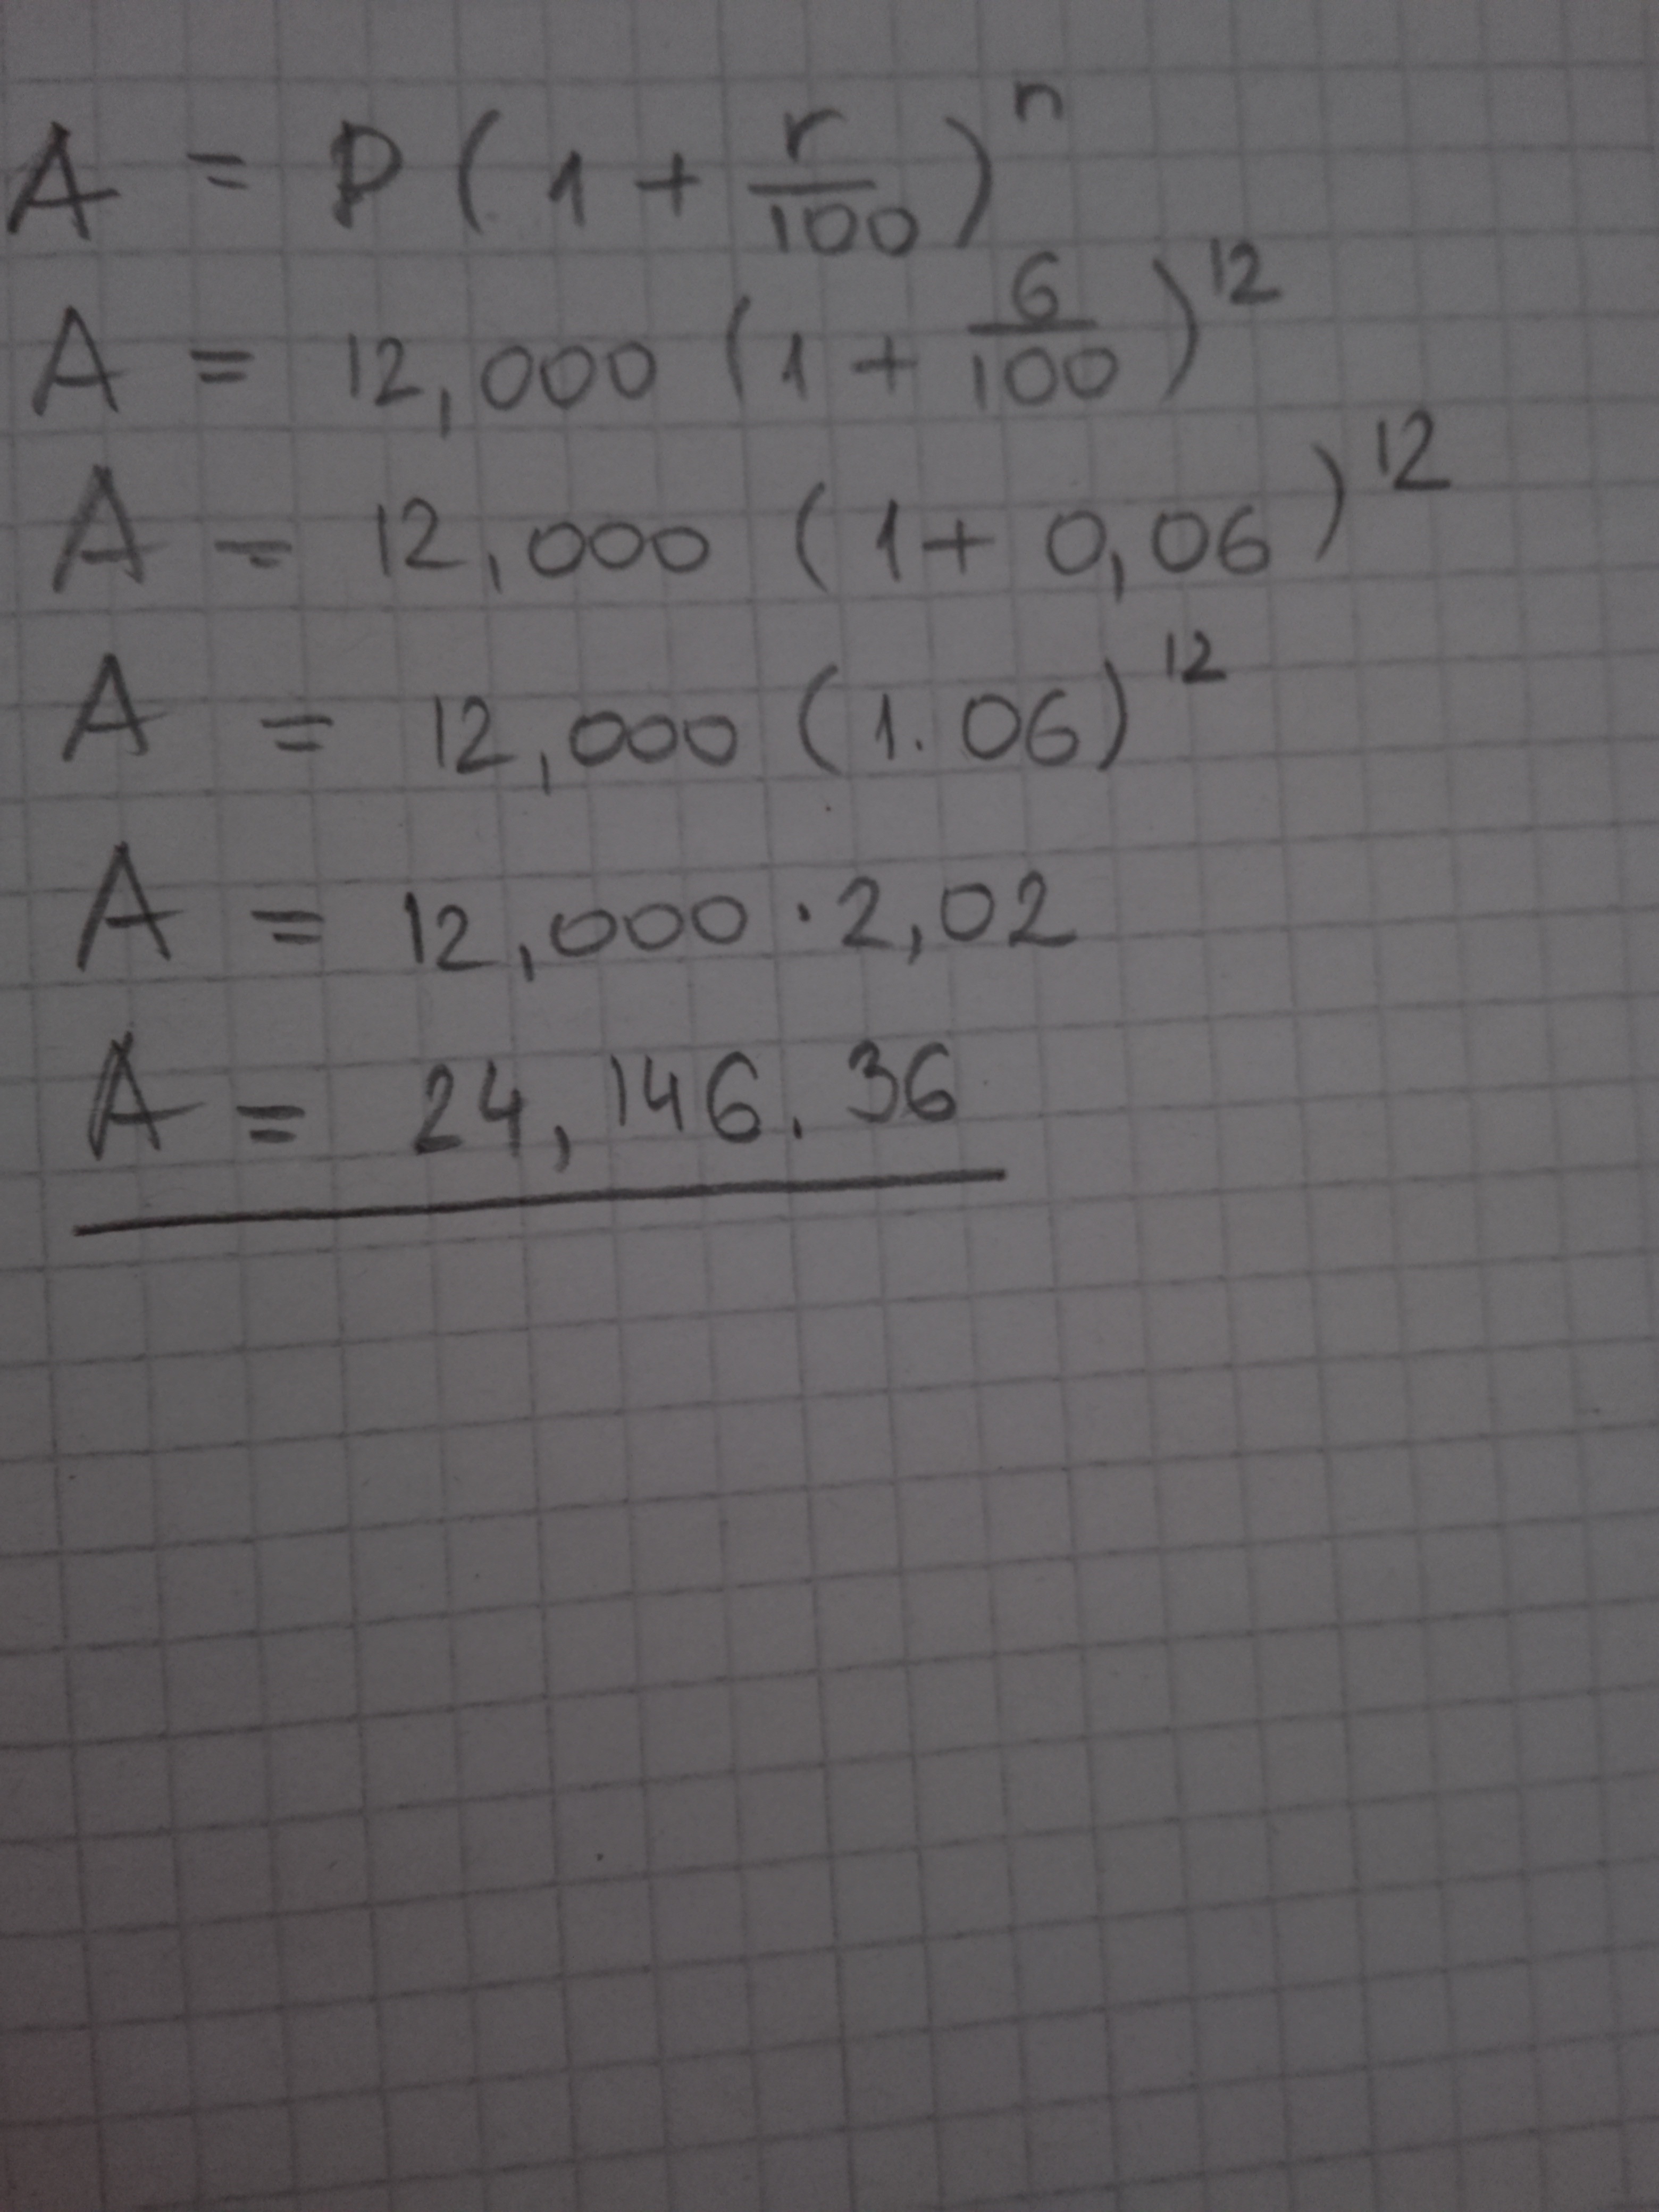 A = P ( 1 + r/100 )^n
A = 12,000 ( 1 + 6/100 )^12
A = 12,000 ( 1 + 0,06 )^12
A = 12,000 ( 1.06 )^12
A = 12,000 · 2,02
A = 24,146.36